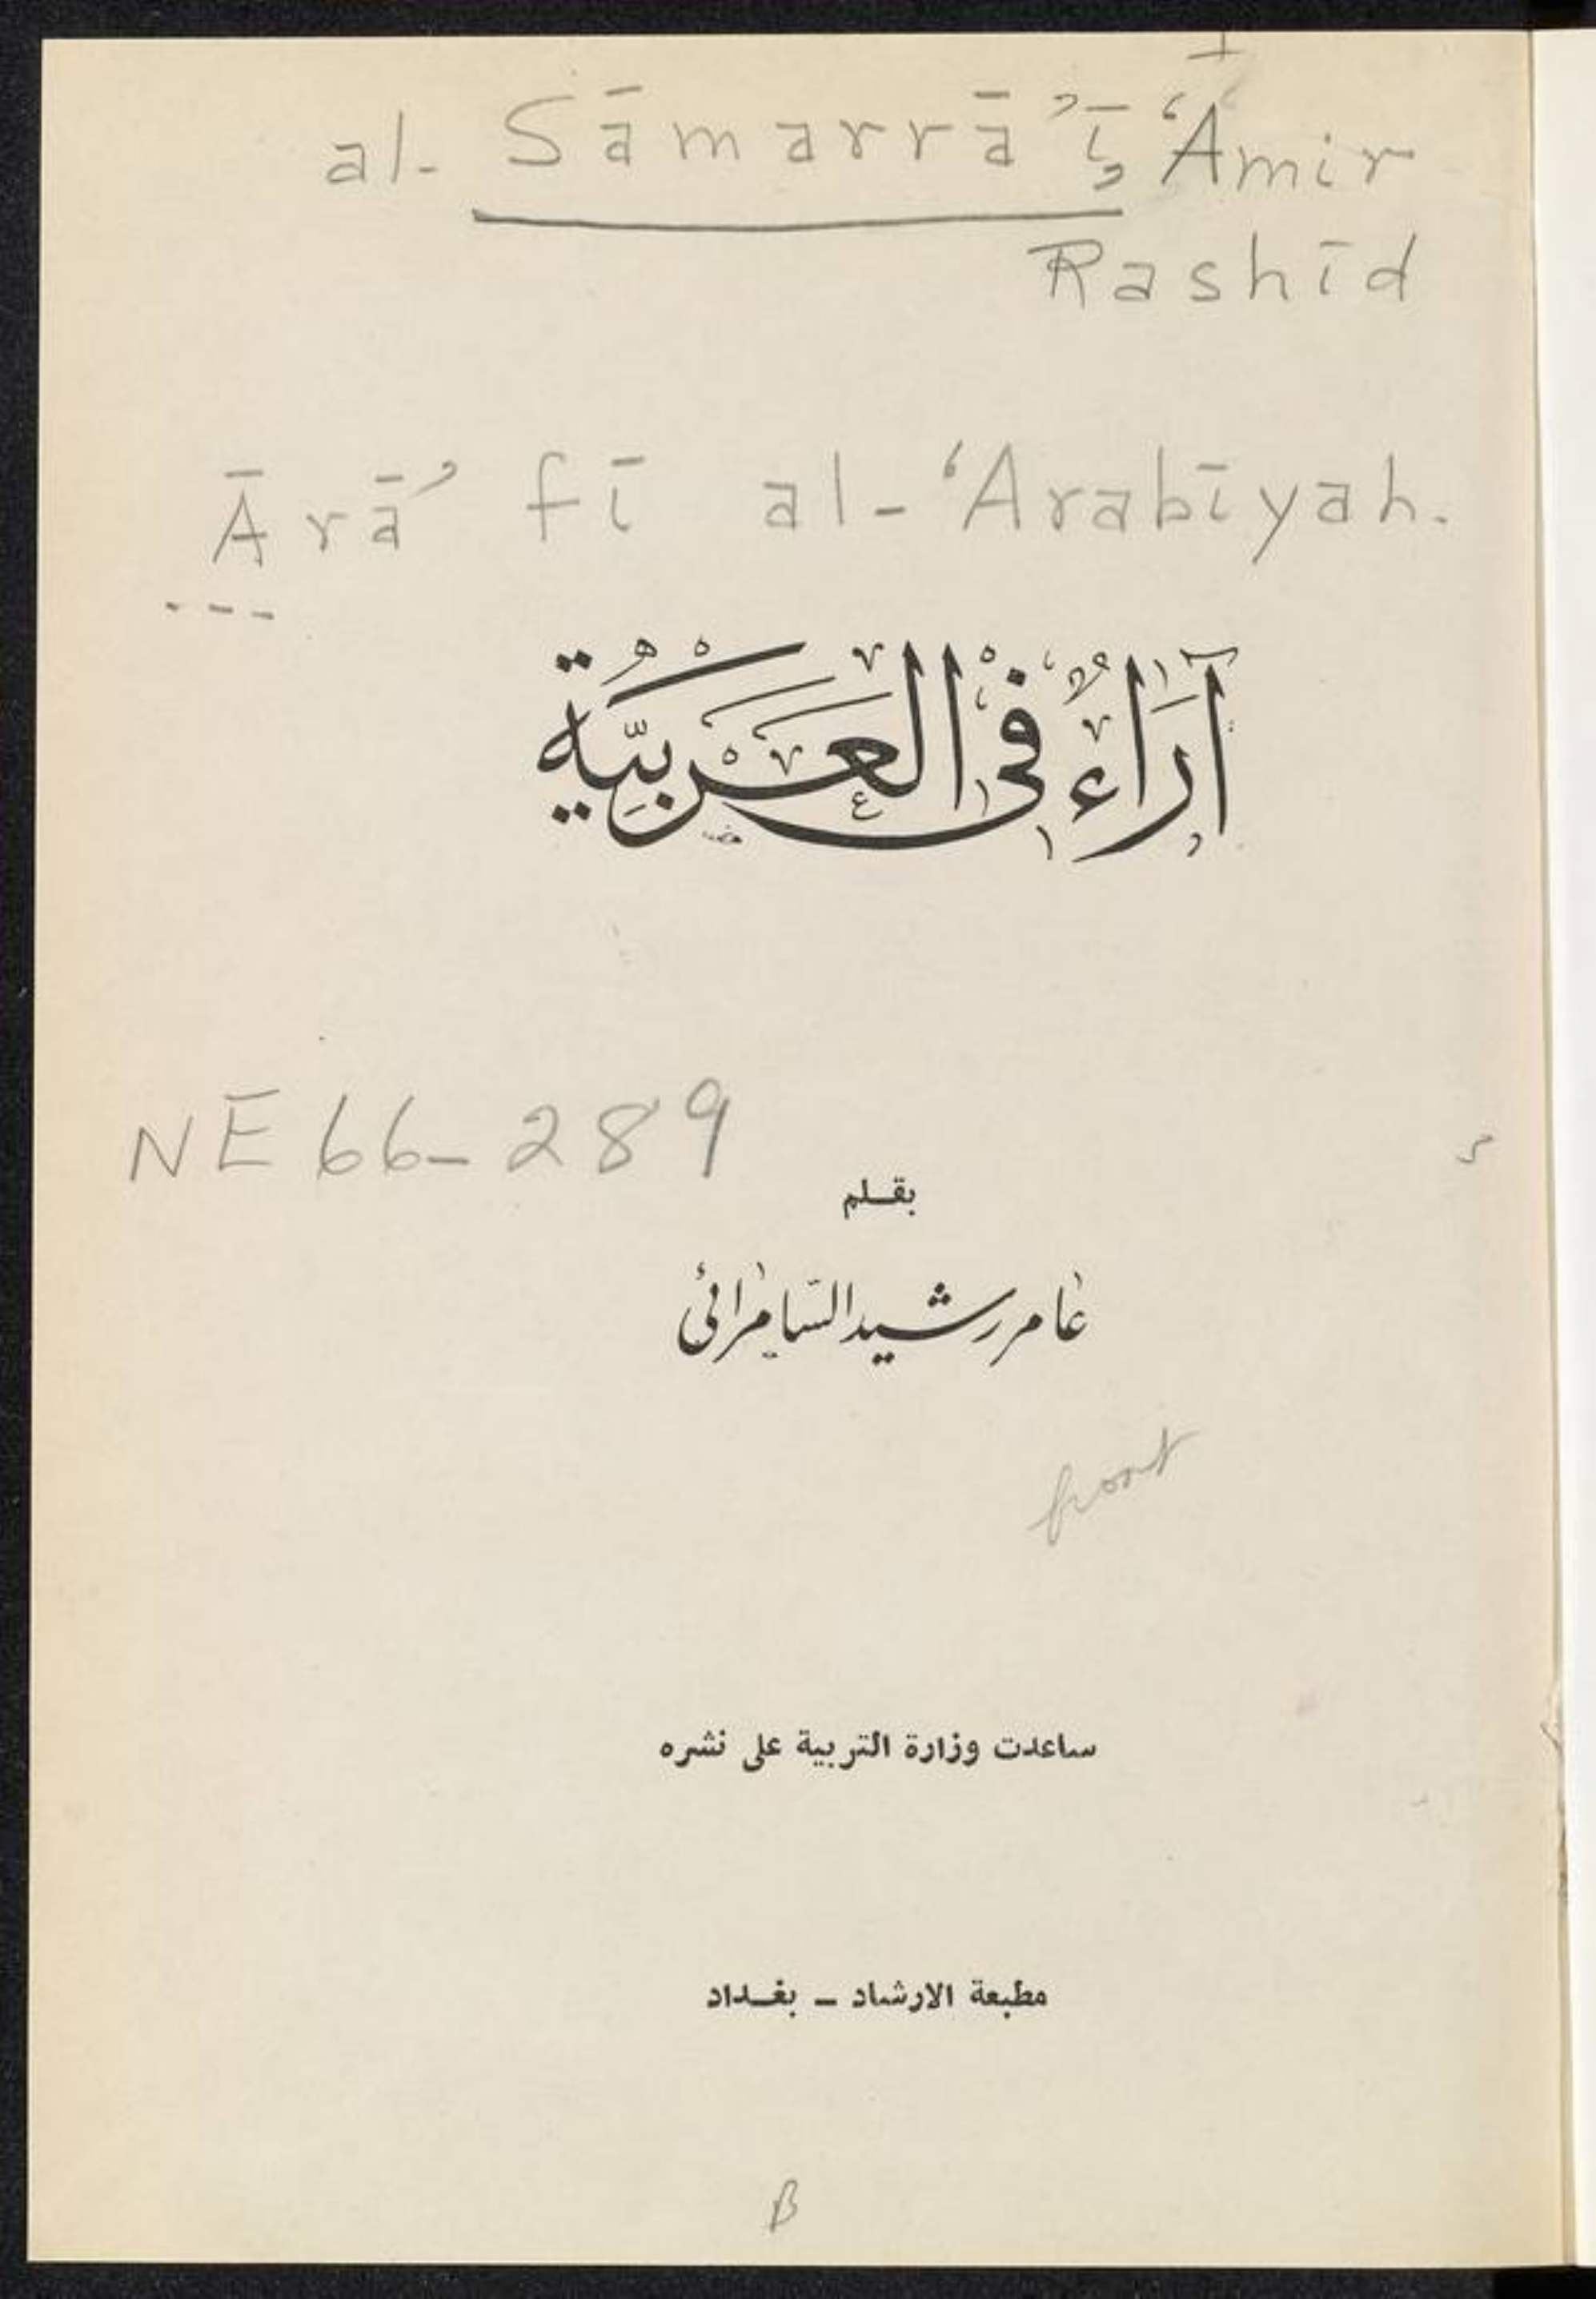 al-Sāmarrā'ī, 'Āmir
Rashīd
Ārā' fī al-'Arabīyah.
آرَاءٌ فِي العَرَبِيَّة
NE 66-289
بقلم
عامر رشيد السامرائي
front
ساعدت وزارة التربية على نشره
مطبعة الارشاد - بغداد
B